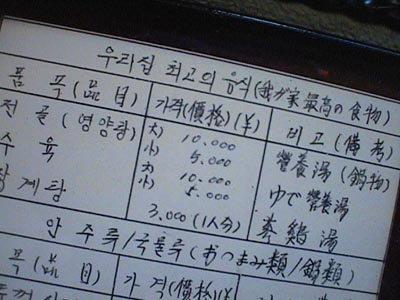 우리집 최고의 음식 (我が家 最高の 食物)
품 목 (品 目) 가격 (價格) (￥) 비고 (備考)
전 골 (영양탕) 大) 10.000 營養湯 (鍋物)
小) 5.000
수 육 大) 10.000 ゆで 營養湯
小) 5.000
삼계탕 3.000 (1人分) 蔘鷄湯
안 주 류 / 국물류 (おつまみ類 / 鍋類)
목 (品 目) 가 격 (價格) (￥)